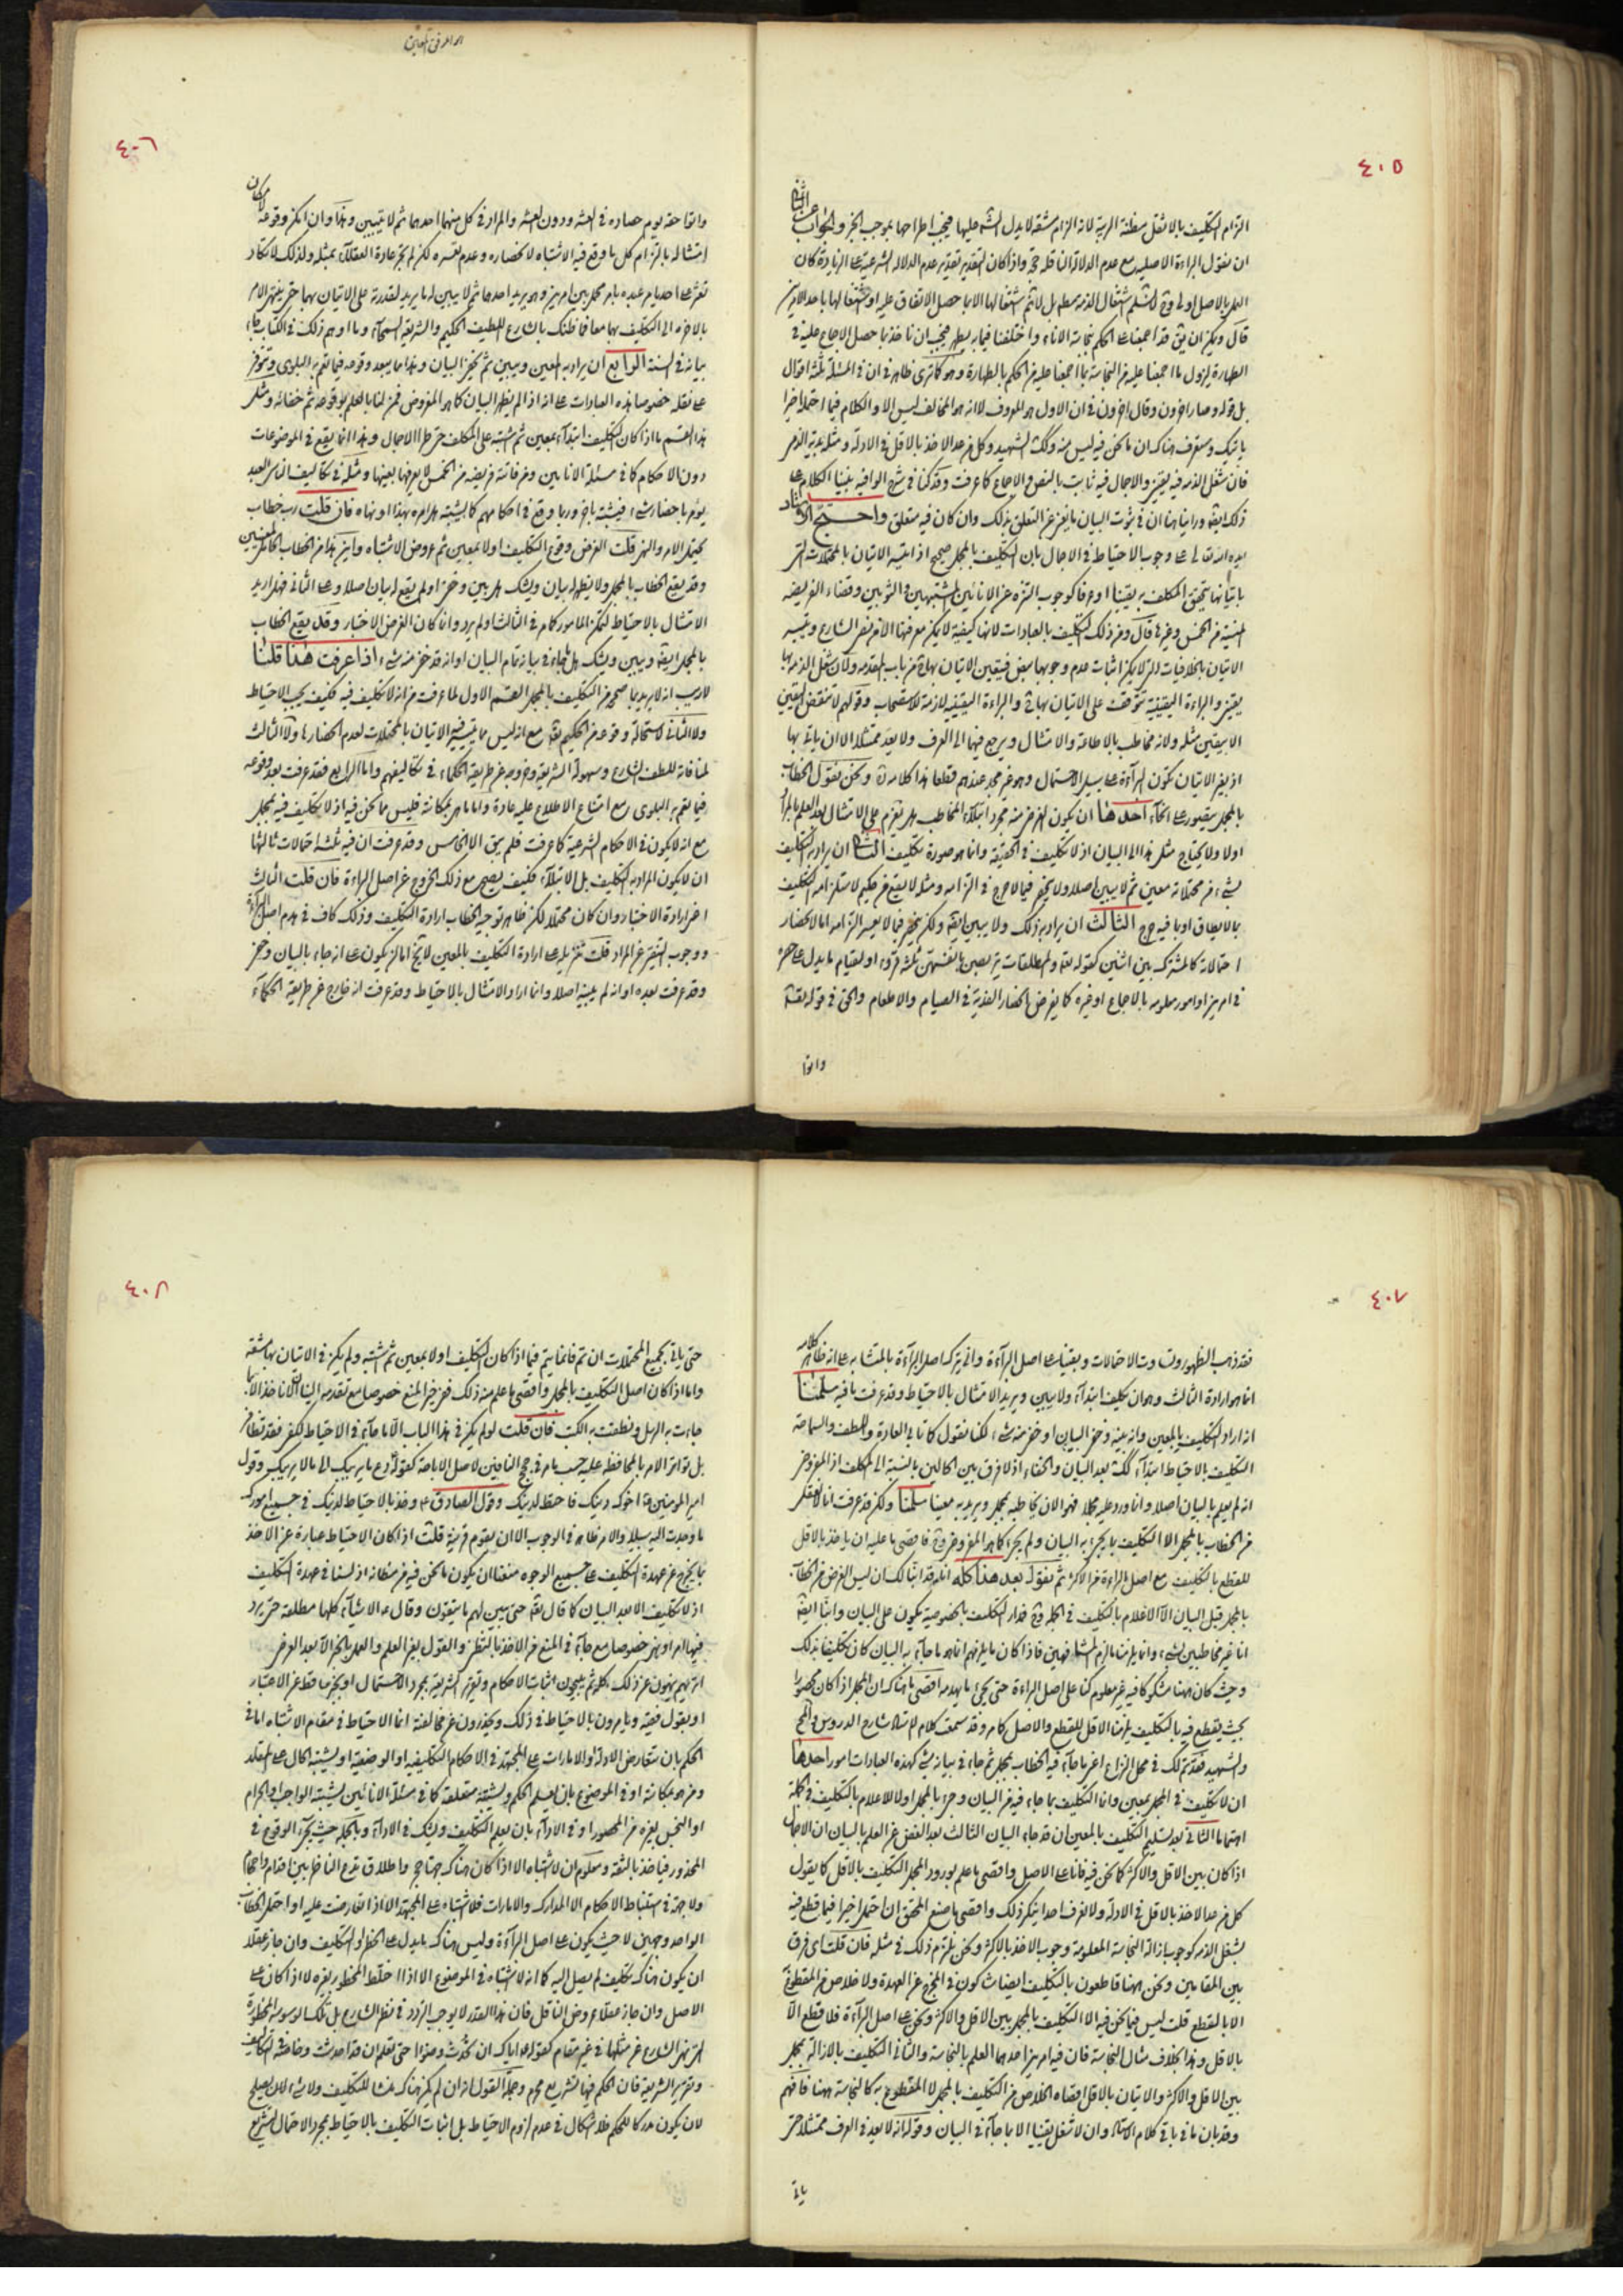 ٤٠٥
التزام التكليف بالاثقل مظنة الريبة لانه الزام مشقة لا يدل الشرع عليها فيجب اطراحها بموجب الخبر والجواب
ان نقول البراءة الاصلية مع عدم الدلالة الناقلة حجة واذا كان التقدير تقدير عدم الدلالة الشرعية على الزيادة كان
العمل بالاصل اولى وح لا نسلم اشتغال الذمة مطلقا بل لا نسلم اشتغالها الا بما حصل الاتفاق عليه او اشتغالها باحد الامرين
قال ويمكن ان يق قد اجمعنا على الحكم بنجاسة الاناء واختلفنا فيما به يطهر فيجب ان ناخذ بما حصل الاجماع عليه في
الطهارة ليزول ما اجمعنا عليه من النجاسة بما اجمعنا عليه من الحكم بالطهارة وهو كما ترى ظاهر في ان في المسئلة ثلثة اقوال
فان شغل الذمة فيه يقيني والاجمال فيه ثابت بالنص والاجماع كما عرفت وقد كنا في شرح الوافية بنينا الكلام على
ذلك ايضا وراينا هنا ان في ثبوت البيان ما يغني عن التعلق بذلك وان كان فيه متعلق واحتج الاستاد
ايده الله تعالى على وجوب الاحتياط في الاجمال بان التكليف بالمجمل صحيح اذا تيسر الاتيان بالمحتملات التي
باتيانها يتحقق المكلف به يقينا او عرفا كوجوب التنزه عن الانائين المشتبهين والثوبين وقضاء الفريضة
المنسية من الخمس وغيرها قال ومن ذلك التكليف بالعبادات لانها كيفية لا يمكن معرفتها الا من نص الشارع وتيسر
الاتيان بالخلافيات التي لا يمكن اثبات عدم وجوبها بنص فيتعين الاتيان بها من باب المقدمة ولان شغل الذمة بها
يقيني والبراءة اليقينية تتوقف على الاتيان بها والبراءة اليقينية لازمة للاستصحاب وقولهم لا تنقض اليقين
الا بيقين مثله ولانه مخاطب بالاطاعة والامتثال ويرجع فيهما الى العرف ولا يعد ممتثلا الا ان ياتي بها
اذ بغير الاتيان تكون البراءة على سبيل الاحتمال وهو غير مجد عندهم قطعا هذا كلامه ونحن نقول الخطاب
بالمجمل يتصور على انحاء احدها ان يكون الغرض منه مجرد ابتلاء المخاطب هل يعزم على الامتثال بعد العلم بالمراد
اولا ولا يحتاج مثل هذا الى البيان اذ لا تكليف في الحقيقة وانما هو صورة تكليف الثاني ان يراد به التكليف
بشيء من محتملاته معين ثم لا يبين اصلا ولا ينحصر فيما لا حرج في التزامه ومثله لا يقع من حكيم لاستلزامه التكليف
بما لا يطاق او بما فيه حرج الثالث ان يراد به ذلك ولا يبين ايضا ولكن ينحصر فيما لا يعسر التزامه اما لانحصار
احتمالاته كالمشترك بين اثنين كقوله تعالى والمطلقات يتربصن بانفسهن ثلثة قروء او لقيام ما يدل على حصره
في امرين او امور معلومة بالاجماع او غيره كما يفرض انحصار الفدية في الصيام والاطعام والحق في قوله تعالى
واتوا
٤٠٦
واتوا حقه يوم حصاده في العشر ودون العشر والمراد في كل منهما احدهما ثم لا يتبين وهذا وان امكن وقوعه لامكان
امتثاله بالتزام كل ما وقع فيه الاشتباه لانحصاره وعدم تعسره لكن لم تجر عادة العقلاء بمثله ولذلك لا تكاد
تعثر على احد يامر عبده بامر مجمل بين امرين وهو يريد احدهما ثم لا يبين له ما يريد لقدرته على الاتيان بهما حتى ينتهي الامر
بالاخرة الى التكليف بهما معا فما ظنك بالشارع اللطيف الحكيم والشريعة السمحاء وما اوهم ذلك في الكتاب جاء
بيانه في السنة الرابع ان يراد به المعين ويبين ثم يخفى البيان وهذا مما يبعد وقوعه فيما تعم به البلوى وتتوفر
هذا القسم ما اذا كان التكليف ابتداء بمعين ثم اشتبه على المكلف حتى طرا الاجمال وهذا انما يقع في الموضوعات
دون الاحكام كما في مسئلة الانائين ومن فاتته فريضة من الخمس لا يعرفها بعينها ومثله في تكاليف الناس العبد
يؤمر باحضار شيء فيشتبه باخر وربما وقع في احكامهم كما يشتبه هل امره بهذا او نهاه فان قلت رب خطاب
يحتمل الامر والنهي قلت الغرض وقوع التكليف اولا بمعين ثم عروض الاشتباه واين هذا من الخطاب المحتمل لمعنيين
وقد يقع الخطاب بالمجمل ولا يظهر له بيان ويشك هل بين وخفي او لم يقع له بيان اصلا وعلى الثاني فهل اريد
الامتثال بالاحتياط لتمكن المامور كما في الثالث او لم يرد وانما كان الغرض الاختبار وقد يقع الخطاب
بالمجمل ايضا ويبين ويشك هل ما جاء في بيانه تمام البيان او انه قد خفي منه شيء اذا عرفت هذا قلنا
لا ريب انه لا يريد بما صححه من التكليف بالمجمل القسم الاول لما عرفت من انه لا تكليف فيه فكيف يجب الاحتياط
ولا الثاني لاستحالة وقوعه من الحكيم تعالى مع انه ليس مما يتيسر فيه الاتيان بالمحتملات لعدم انحصارها ولا الثالث
لمنافاته للطف الشارع وسهولة الشريعة وخروجه عن طريقة الحكماء في تكاليفهم واما الرابع فقد عرفت بعد وقوعه
فيما تعم به البلوى مع امتناع الاطلاع عليه عادة واما ما هو بمكانته فليس مما نحن فيه اذ لا تكليف فيه بمجمل
مع انه لا يكون في الاحكام الشرعية كما عرفت فلم يبق الا الخامس وقد عرفت ان فيه ثلثة احتمالات ثالثها
ان لا يكون المراد به التكليف بل الابتلاء فكيف يصح مع ذلك الخروج عن اصل البراءة فان قلت الثالث
اعني ارادة الاختبار وان كان محتملا لكن ظاهر توجيه الخطاب ارادة التكليف وذلك كاف في هدم اصل البراءة
ووجوب التفتيش عن المراد قلت تنزيله على ارادة التكليف بالمعين لا يخ اما ان يكون على انه جاء بالبيان وخفي
وقد عرفت بعده او انه لم يبينه اصلا وانما اراد الامتثال بالاحتياط وقد عرفت انه خارج عن طريقة الحكماء
٤٠٧
فقد ذهب الظهور وتساوت الاحتمالات وبقينا على اصل البراءة وانى يترك اصل البراءة بالمتشابه على انه ظاهر كلامه
انما هو ارادة الثالث وهو ان يكلف ابتداء ولا يبين ويريد الامتثال بالاحتياط وقد عرفت ما فيه سلمنا
انه اراد التكليف بالمعين وانه بينه وخفي البيان او خفي منه شيء لكنا نقول كما تابى العادة واللطف والسماحة
التكليف بالاحتياط ابتداء كك بعد البيان والخفاء اذ لا فرق بين الحالين بالنسبة الى المكلف اذ المفروض
انه لم يعلم بالبيان اصلا وانما ورد عليه مجملا فهو الان يخاطبه بمجمل ويريد به معينا سلمنا ولكن قد عرفت انا لا نعقل
من الخطاب بالمجمل الا التكليف بما يجيء به البيان ولم يجئ كما هو المفروض وح فاقصى ما عليه ان ياخذ بالاقل
للقطع بالتكليف مع اصل البراءة من الاكثر ثم نقول بعد هذا كله انه قد ابنا لك ان ليس الغرض من الخطاب
بالمجمل قبل البيان الا الاعلام بالتكليف في الجملة وح فمدار التكليف بالخصوصية يكون على البيان وابنا ايضا
انا غير مخاطبين بشيء وانما يلزمنا ما لزم المشافهين فاذا كان ما يلزمهم انما هو ما جاء به البيان كان تكليفنا بذلك
وحيث كان ههنا مشكوكا فيه غير معلوم كنا على اصل البراءة حتى يجيء ما يهدمه اقصى ما هناك ان المجمل اذا كان محصورا
بحيث يقطع فيه بالتكليف يلزمنا الاقل للقطع والاصل كما مر وقد سمعت كلام الاستاد شارح الدروس والمح
والشهيد فقد تم لك في محل النزاع اعني ما جاء فيه الخطاب بمجمل ثم جاء في بيانه شيء كهذه العبادات امور احدها
ان لا تكليف في المجمل بمعين وانما التكليف بما جاء فيه من البيان وجيء بالمجمل اولا للاعلام بالتكليف في الجملة
اهتماما الثاني بعد تسليم التكليف بالمعين ان قد جاء البيان الثالث بعد الغض عن العلم بالبيان ان الاجمال
اذا كان بين الاقل والاكثر كما نحن فيه فانا على الاصل واقصى ما علم بورود المجمل التكليف بالاقل كما يقول
كل من عد الاخذ بالاقل في الادلة ولا نعرف احدا ينكر ذلك واقصى ما صنع المحقق ان احتمل اخيرا فيما قطع فيه
بشغل الذمة كوجوب ازالة النجاسة المعلومة وجوب الاخذ بالاكثر ونحن نلتزم ذلك في مثله فان قلت اي فرق
بين المقامين ونحن ههنا قاطعون بالتكليف ايضا شاكون في المخرج عن العهدة ولا خلاص من المقطوع
الا بالقطع قلت ليس فيما نحن فيه الا التكليف بالمجمل بين الاقل والاكثر ونحن على اصل البراءة فلا قطع الا
بالاقل وهذا بخلاف مثال النجاسة فان فيه امرين احدهما العلم بالنجاسة والثاني التكليف بالازالة بمجمل
بين الاقل والاكثر والاتيان بالاقل اقصاه الخلاص من التكليف بالمجمل لا المقطوع به كالنجاسة ههنا فافهم
وقد بان ما في باقي كلام الاستاد وان لا شغل يقينا الا بما جاء في البيان وقوله انه لا يعد في العرف ممتثلا حتى
ياتي
٤٠٨
حتى ياتي بجميع المحتملات ان تم فانما يتم فيما اذا كان التكليف اولا بمعين ثم اشتبه ولم يكن في الاتيان بها مشقة
واما اذا كان اصل التكليف بالمجمل واقصى ما علم منه ذلك فهو في حيز المنع خصوصا مع تقدمه الينا ان لا ناخذ الا بما
جاءت به الرسل ونطقت به الكتب فان قلت لو لم يكن في هذا الباب الا ما جاء في الاحتياط لكفى فقد تظافر
بل تواتر الامر بالمحافظة عليه حسب ما مر في حجج النافين لاصل الاباحة كقوله دع ما يريبك الى ما لا يريبك وقول
امير المؤمنين ع اخوك دينك فاحتط لدينك وقول الصادق ع وخذ بالاحتياط لدينك في جميع امورك
ما وجدت اليه سبيلا والامر ظاهر في الوجوب الا ان يقوم قرينة قلت اذا كان الاحتياط عبارة عن الاخذ
بما يخرج عن عهدة التكليف على جميع الوجوه منعنا ان يكون ما نحن فيه من مظانه اذ لسنا في عهدة التكليف
اذ لا تكليف الا بعد البيان كما قال تعالى حتى يبين لهم ما يتقون وقال ع الاشياء كلها مطلقة حتى يرد
فيها امر او نهي خصوصا مع ما جاء في المنع من الاخذ بالتظني والقول بغير العلم والعمل بالخبر الا بعد العرض
او يقول فقيه ويامرون بالاحتياط في ذلك ويحذرون عن مخالفته انما الاحتياط في مقام الاشتباه اما في
الحكم بان تتعارض الادلة او الامارات على المجتهد في الاحكام التكليفية او الوضعية او يشتبه الحال على المقلد
ومن هو بمكانته او في الموضوع بان يعلم الحكم ويشتبه متعلقه كما في مسئلة الانائين يشتبه الواجب او الحرام
او النجس بغيره من المحصور او في الاداء بان يعلم التكليف ويشك في الاداء وبالجملة حيث يحتمل الوقوع في
المحذور فياخذ بالثقة ومعلوم ان لا اشتباه الا اذا كان هناك
ولا جهة في استنباط الاحكام الا المدارك والامارات فلا اشتباه على المجتهد الا اذا تعارضت عليه او احتمل الخطاب
الواحد وجهين لا حيث يكون على اصل البراءة وليس هناك ما يدل على الحظر او التكليف وان جاز عقلا
ان يكون هناك تكليف لم يصل اليه كما انه لا اشتباه في الموضوع الا اذا اختلط المحظور بغيره لا اذا كان على
الاصل وان جاز عقلا عروض الناقل فان هذا القدر لا يوجب التردد في نظر الشارع بل تلك الوسوسة المحظورة
التي نهى الشارع عن مثلها في غير مقام كقوله ع اياك ان تحدث وضوا حتى تعلم ان قد احدثت وخاصة في التكاليف
وتقرير الشريعة فان الحكم فيها تشريع محرم وجملة القول انه ان لم يكن هناك منشا للتكليف ولا شيء لان يصلح
لان يكون مدركا للحكم فلا اشكال في عدم لزوم الاحتياط بل اثبات التكليف بالاحتياط بمجرد الاحتمال تشريع